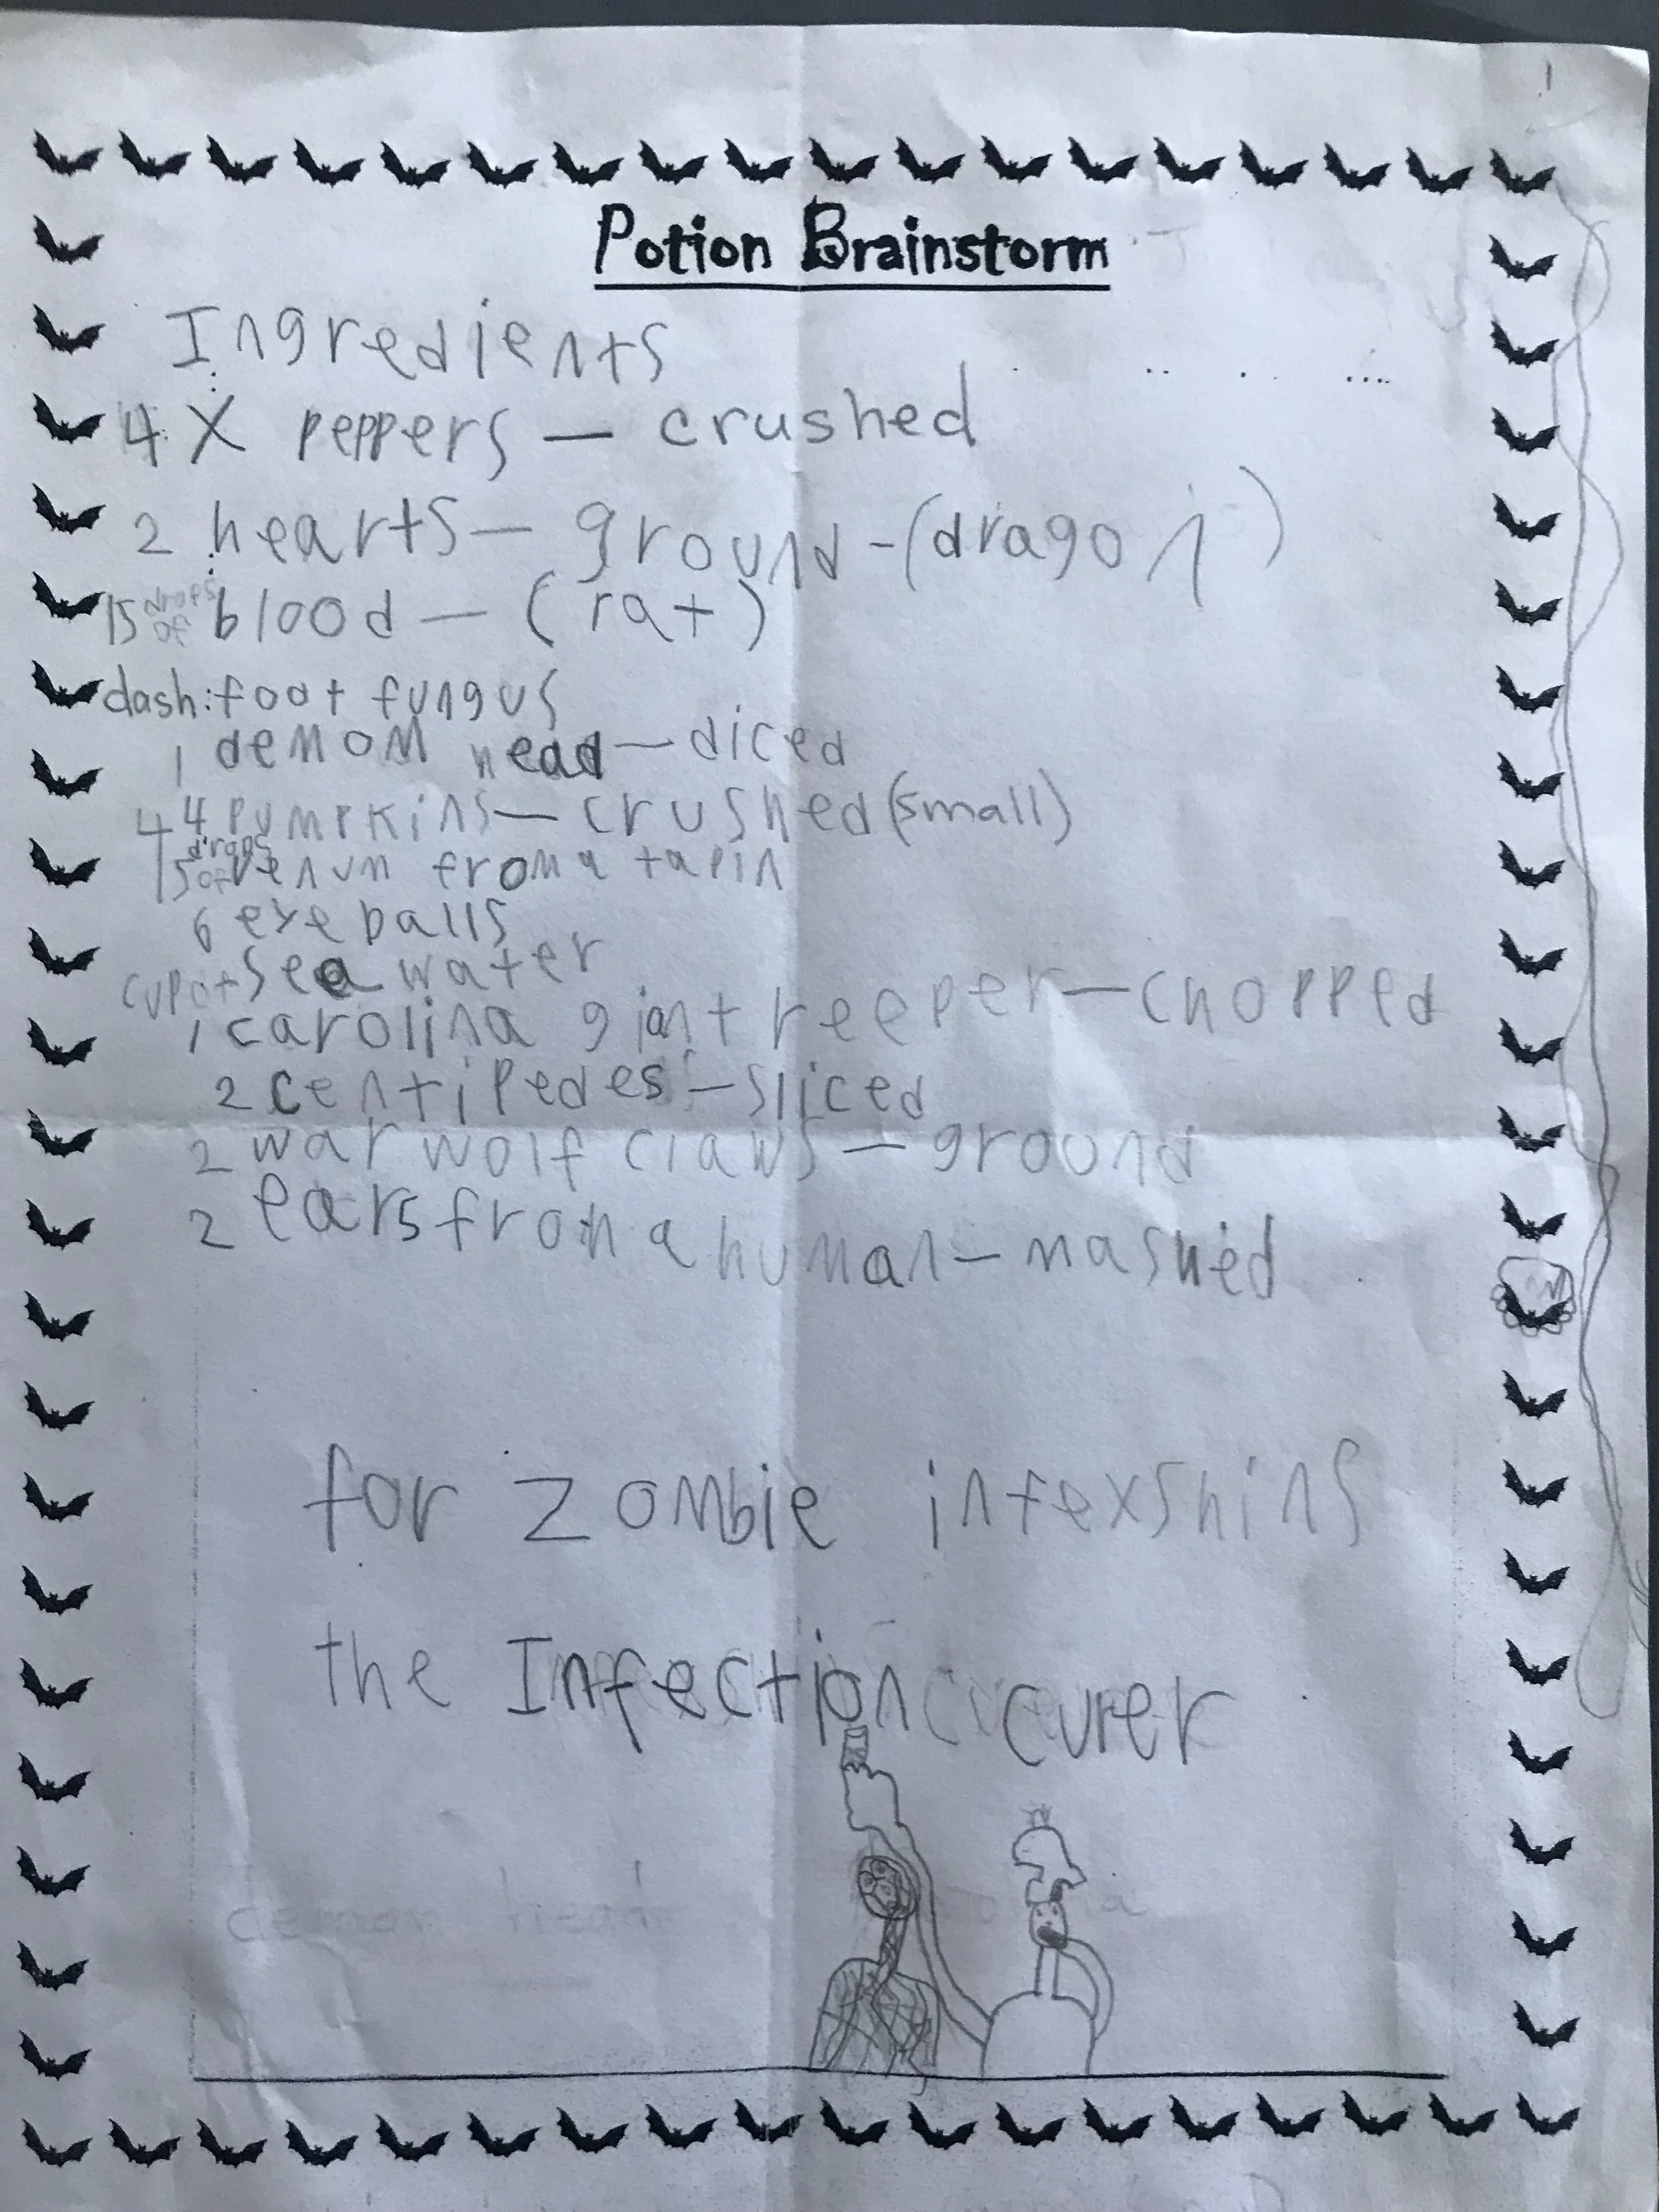 Potion Brainstorm
Ingredients
4 X peppers — crushed
2 hearts — ground - (dragon)
15 drops of blood — (rat)
dash: foot fungus
1 demom head — diced
4 4 pumpkins — crushed (small)
15 drops of venum from a tapin
6 eye balls
cup of sea water
1 carolina giant reeper — chopped
2 centipedes - sliced
2 war wolf claws — ground
2 ears from a human — mashed
for zombie infexshins
the Infection curer
demon head